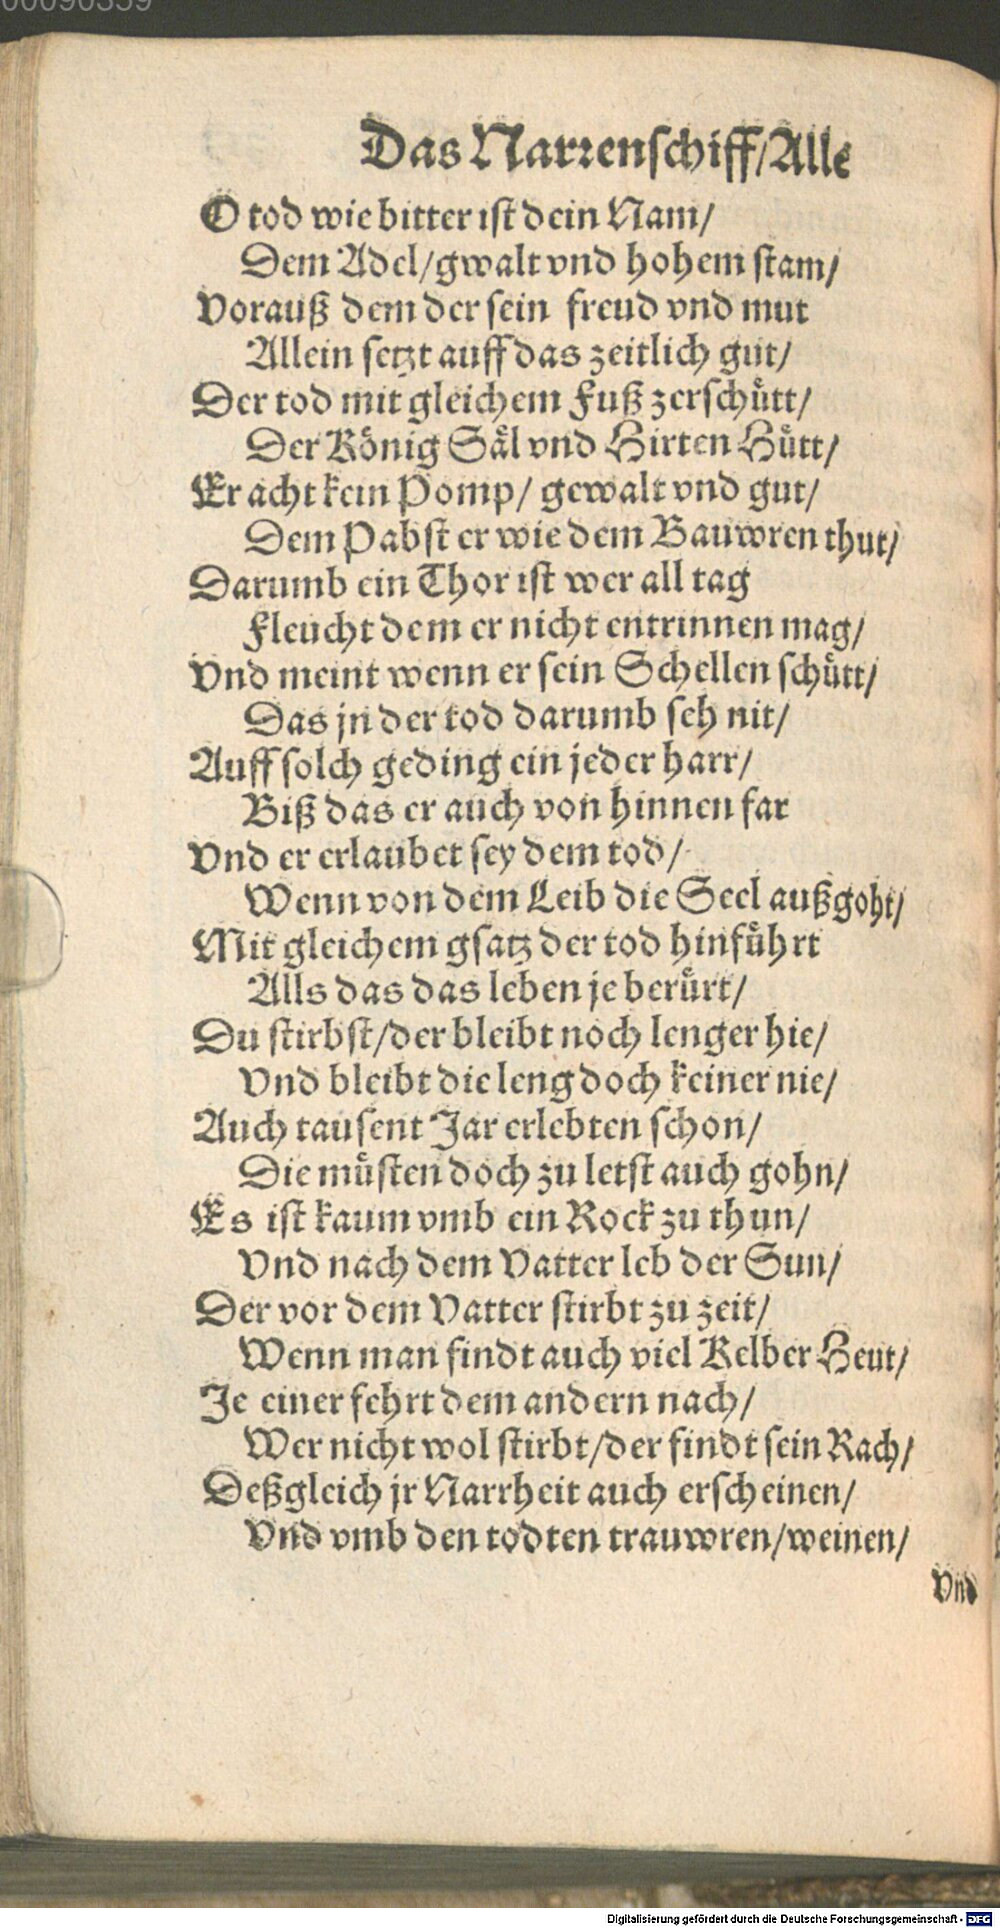 00090359
Das Narrenschiff/Alle
O tod wie bitter ist dein Nam/
Dem Adel/gwalt vnd hohem stam/
Vorauß dem der sein freud vnd mut
Allein setzt auff das zeitlich gut/
Der tod mit gleichem Fuß zerschuͤtt/
Der Koͤnig Saͤl vnd Hirten Huͤtt/
Er acht kein Pomp/ gewalt vnd gut/
Dem Pabst er wie dem Bauwren thut/
Darumb ein Thor ist wer all tag
Fleucht dem er nicht entrinnen mag/
Vnd meint wenn er sein Schellen schuͤtt/
Das jn der tod darumb seh nit/
Auff solch geding ein jeder harr/
Biß das er auch von hinnen far
Vnd er erlaubet sey dem tod/
Wenn von dem Leib die Seel außgoht/
Mit gleichem gsatz der tod hinfuͤhrt
Alls das das leben je beruͤrt/
Du stirbst/der bleibt noch lenger hie/
Vnd bleibt die leng doch keiner nie/
Auch tausent Jar erlebten schon/
Die muͤsten doch zu letst auch gohn/
Es ist kaum vmb ein Rock zu thun/
Vnd nach dem Vatter leb der Sun/
Der vor dem Vatter stirbt zu zeit/
Wenn man findt auch viel Kelber Heut/
Je einer fehrt dem andern nach/
Wer nicht wol stirbt/der findt sein Rach/
Deßgleich jr Narrheit auch erscheinen/
Vnd vmb den todten trauwren/weinen/
Vnd
Digitalisierung gefördert durch die Deutsche Forschungsgemeinschaft - DFG